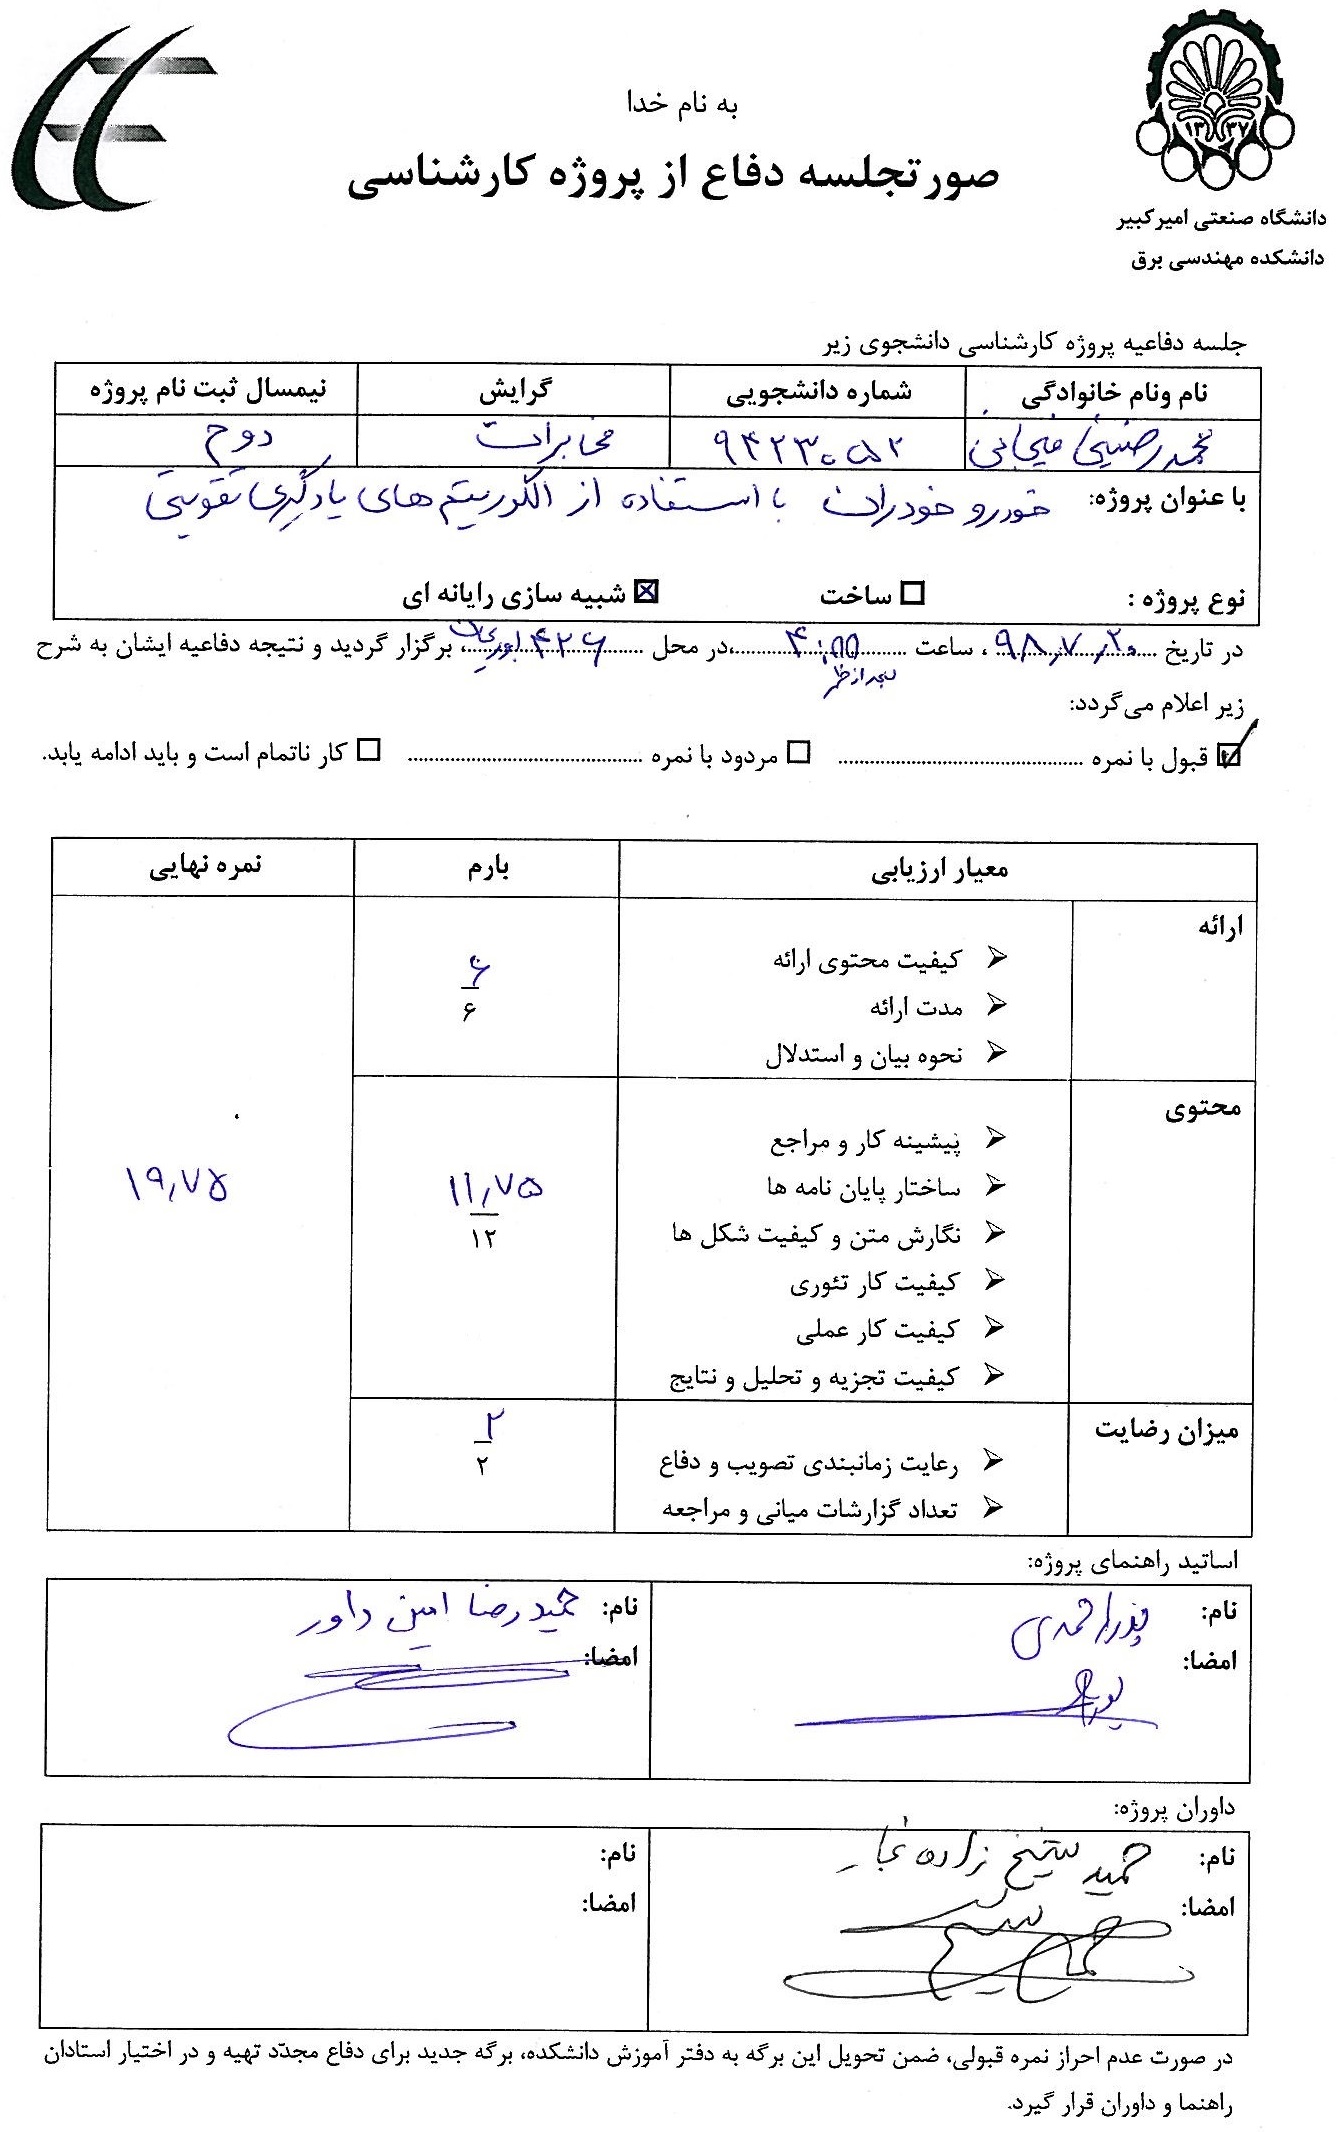 به نام خدا
صورتجلسه دفاع از پروژه کارشناسی
۱۳ ۳۷
دانشگاه صنعتی امیرکبیر
دانشکده مهندسی برق
جلسه دفاعیه پروژه کارشناسی دانشجوی زیر
نام ونام خانوادگی شماره دانشجویی گرایش نیمسال ثبت نام پروژه
محمدرضا ۹۴۲۳۰۵۲ مخابرات دوم
با عنوان پروژه: خودرو خودران با استفاده از الگوریتم های یادگیری تقویتی
نوع پروژه : ☐ ساخت ☒ شبیه سازی رایانه ای
در تاریخ ۹۸٫۷٫۲۰، ساعت ۴:۵۵، در محل ۴۲۶ ابوریحان، برگزار گردید و نتیجه دفاعیه ایشان به شرح
بعد از ظهر
زیر اعلام می‌گردد:
☑ قبول با نمره .......... ☐ مردود با نمره .......... ☐ کار ناتمام است و باید ادامه یابد.
معیار ارزیابی بارم نمره نهایی
ارائه
کیفیت محتوی ارائه
مدت ارائه
نحوه بیان و استدلال
۶
۶
محتوی
پیشینه کار و مراجع
ساختار پایان نامه ها
نگارش متن و کیفیت شکل ها
کیفیت کار تئوری
کیفیت کار عملی
کیفیت تجزیه و تحلیل و نتایج
۱۱٫۷۵
۱۲
۱۹٫۷۵
میزان رضایت
رعایت زمانبندی تصویب و دفاع
تعداد گزارشات میانی و مراجعه
۲
۲
اساتید راهنمای پروژه:
نام: پوراحمدی
امضا:
نام: حمیدرضا امین داور
امضا:
داوران پروژه:
نام: حمید شیخ زاده نجار
امضا:
نام:
امضا:
در صورت عدم احراز نمره قبولی، ضمن تحویل این برگه به دفتر آموزش دانشکده، برگه جدید برای دفاع مجدّد تهیه و در اختیار استادان
راهنما و داوران قرار گیرد.